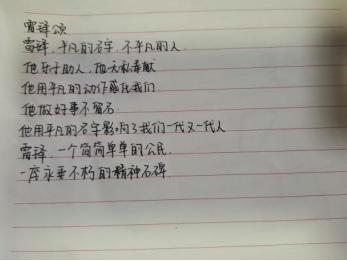 雷锋颂
雷锋，平凡的名字，不平凡的人
他乐于助人，他无私奉献
他用平凡的动作感化我们
他做好事不留名
他用平凡的名字影响了我们一代又一代人
雷锋，一个简简单单的公民，
一座永垂不朽的精神石碑